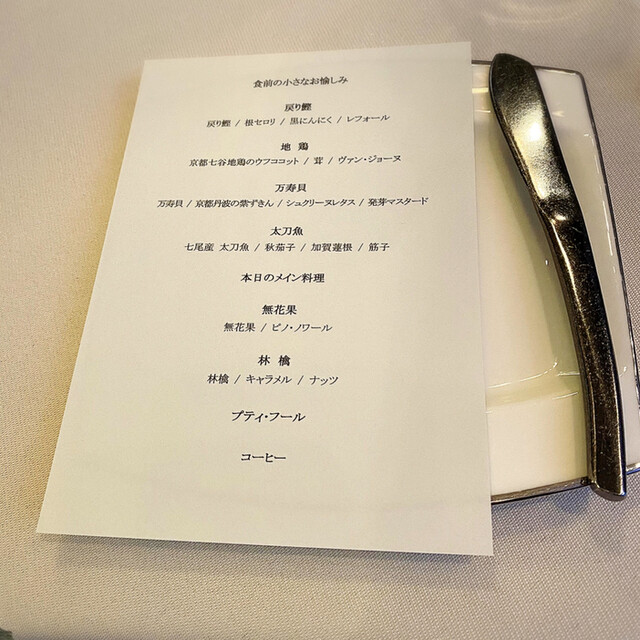 食前の小さなお愉しみ
戻り鰹
戻り鰹 / 根セロリ / 黒にんにく / レフォール
地 鶏
京都七谷地鶏のウフココット / 茸 / ヴァン・ジョーヌ
万寿貝
万寿貝 / 京都丹波の紫ずきん / シュクリーヌレタス / 発芽マスタード
太刀魚
七尾産 太刀魚 / 秋茄子 / 加賀蓮根 / 筋子
本日のメイン料理
無花果
無花果 / ピノ・ノワール
林 檎
林檎 / キャラメル / ナッツ
プティ・フール
コーヒー